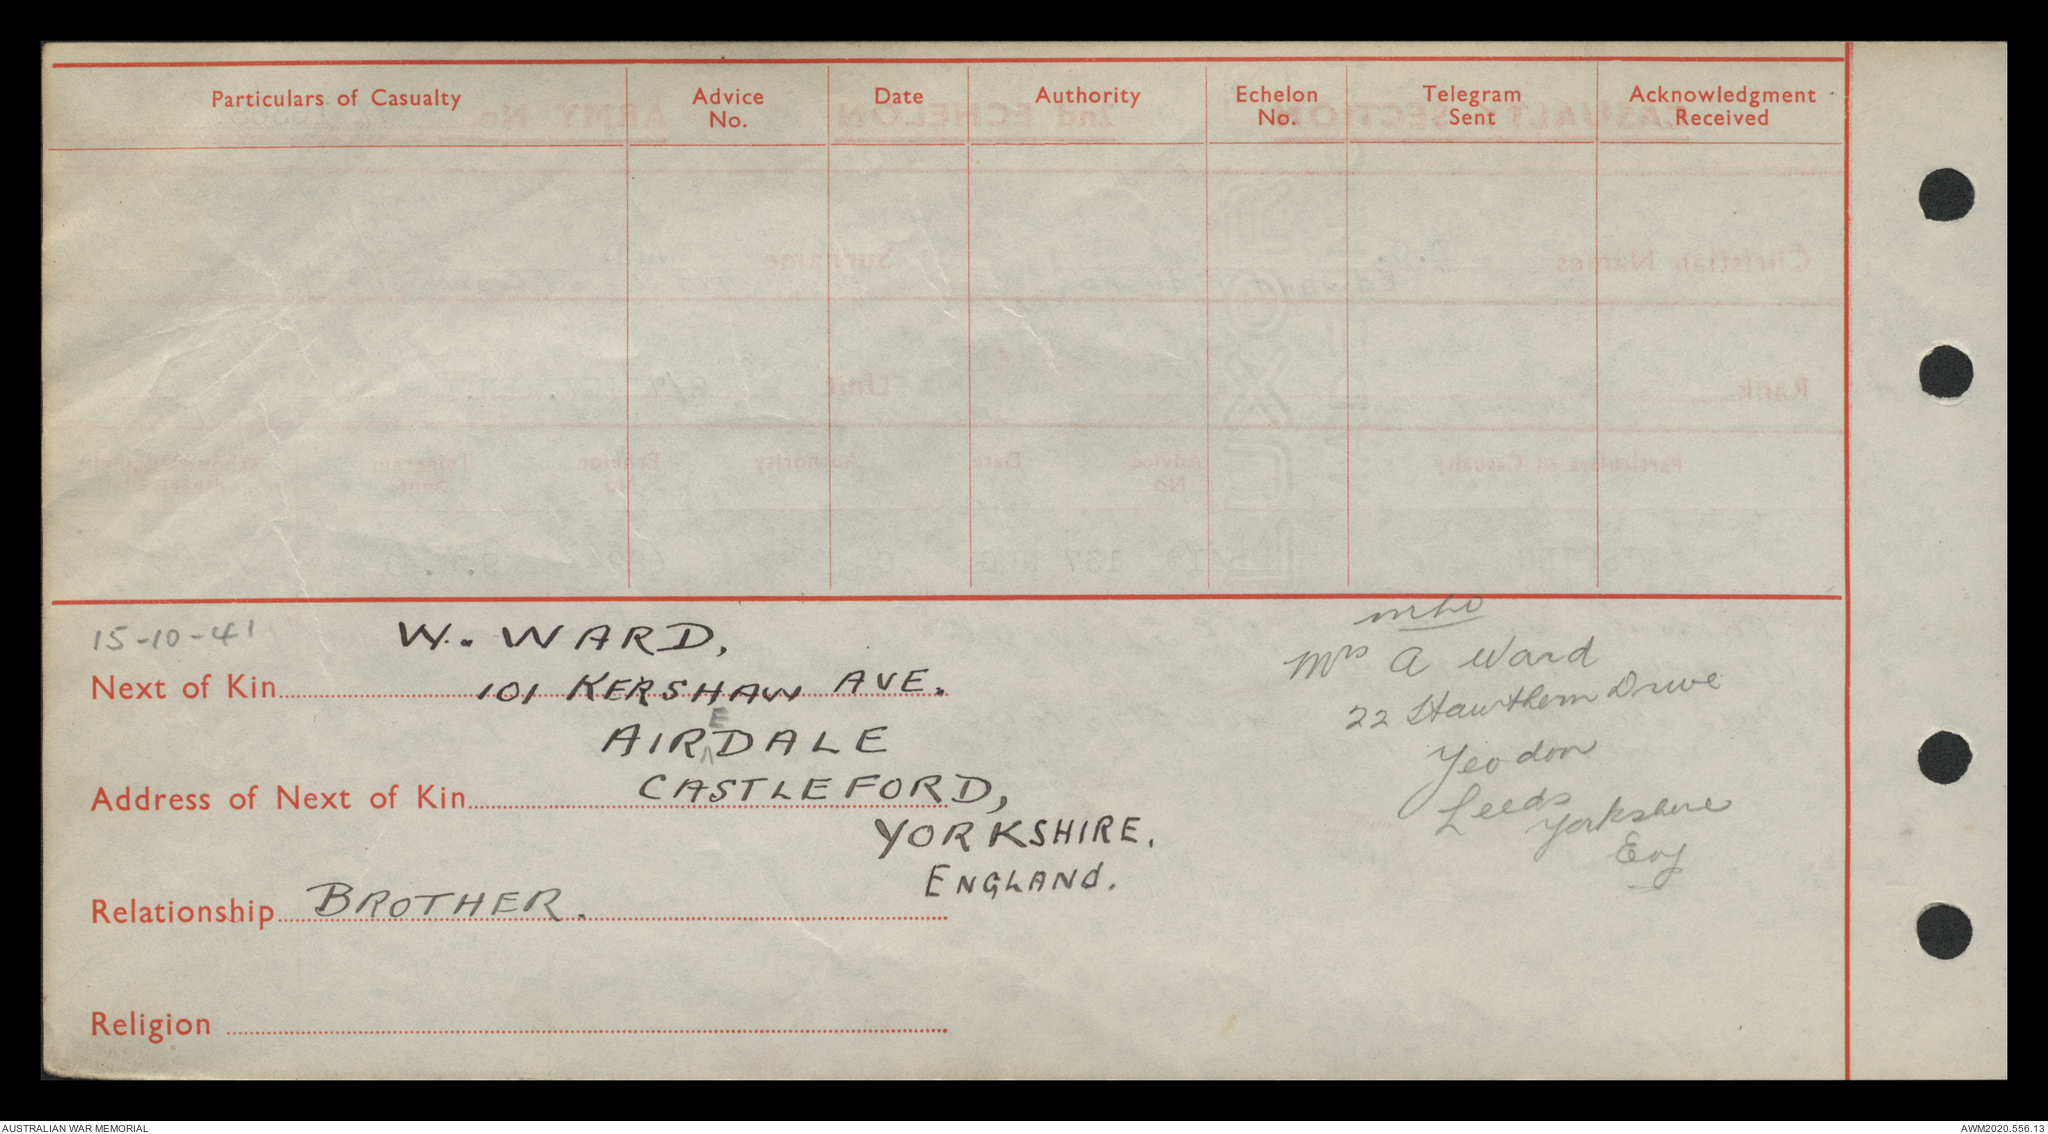 Particulars of Casualty
Advice No.
Date
Authority
Echelon No.
Telegram Sent
Acknowledgment Received
15-10-41
W. WARD,
Next of Kin 101 KERSHAW AVE.
AIREDALE
Address of Next of Kin CASTLEFORD,
YORKSHIRE.
ENGLAND.
Relationship BROTHER.
Religion
Mrs A Ward
22 Hawthorn Drive
Yeodon
Leeds
Yorkshire
Eng
AUSTRALIAN WAR MEMORIAL
AWM2020.556.13